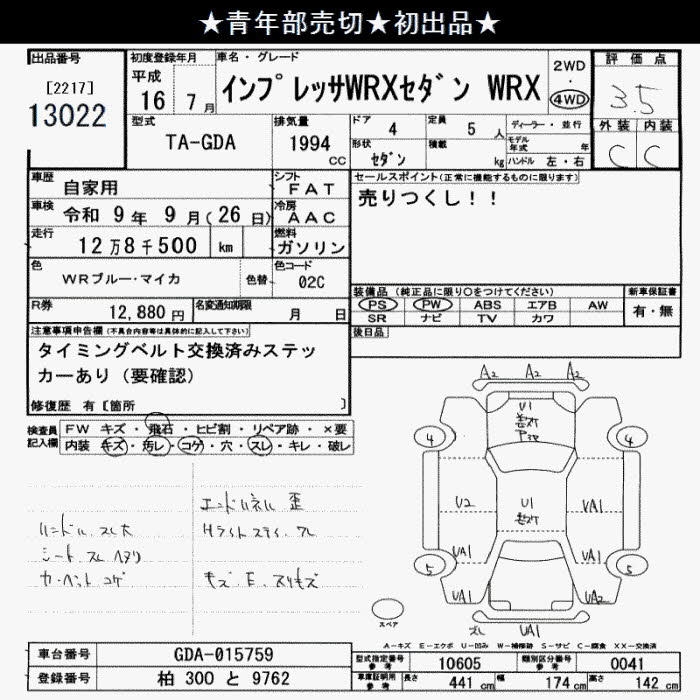 ★青年部売切★初出品★
出品番号
[2217]
13022
初度登録年月
平成
16 7月
車名・グレード
インプレッサWRXセダン WRX
2WD
・
4WD
評価点
3.5
外装 内装
C C
型式
TA-GDA
排気量
1994
CC
ドア 4
定員 5 人
形状 セダン
積載 kg
ディーラー・並行
モデル年式 年
ハンドル 左・右
車歴 自家用
車検 令和 9年 9月(26日)
走行 12万8千500 km
シフト FAT
冷房 AAC
燃料 ガソリン
色 WRブルー・マイカ
色替
色コード 02C
R券 12,880円
名変通知期限 月 日
セールスポイント(正常に機能するものに限ります)
売りつくし!!
装備品(純正品に限り○をつけてください)
PS PW ABS エアB AW
SR ナビ TV カワ
新車保証書
有・無
後日品
注意事項申告欄(不具合内容等は具体的に記入して下さい)
タイミングベルト交換済みステッ
カーあり(要確認)
修復歴 有[箇所 ]
検査員記入欄
FW キズ・飛石・ヒビ割・リペア跡・×要
内装 キズ・汚レ・コゲ・穴・スレ・キレ・破レ
エンドパネル 歪
ハンドル スレ大
Hライトステイ
シート スレ ヘタリ
A2 A2 A2
U1
4 4
U2 U1 UA1
UA1 UA1
5 5
UA1 UA2
UA1
スペア
A-キズ E-エクボ U-凹み W-補修跡 S-サビ C-腐食 XX-交換済
車台番号 GDA-015759
登録番号 柏 300 と 9762
型式指定番号参考 10605
類別区分番号参考 0041
車庫証明用参考 長さ 441cm 幅 174cm 高さ 142cm